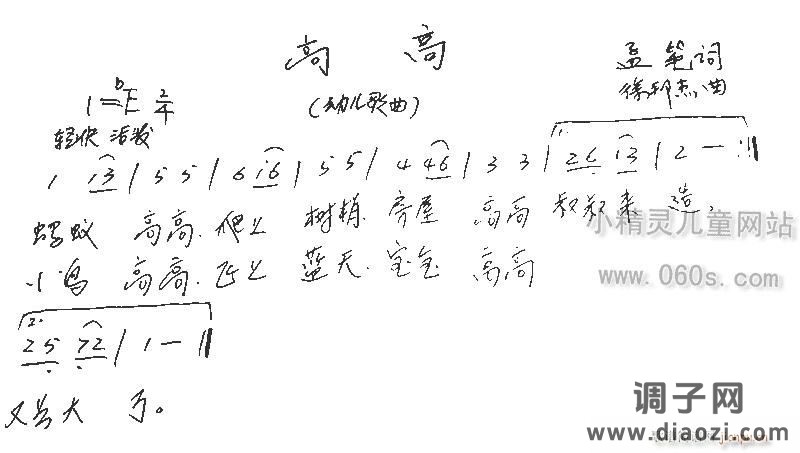 高 高
孟 笔词
1=bE 2/4
(幼儿歌曲)
曲
轻快 活发
1 13 | 5 5 | 6 i6 | 5 5 | 4 46 | 3 3 | 1. 26 13 | 2 - :||
蚂蚁 高高.爬上 树梢.房屋 高高 叔叔来 造。
小精灵儿童网站
小鸟 高高.飞上 蓝天.宝宝 高高
www.060s.com
2. 25 72 | 1 - ||
又长大 了。
调子网
www.diaozi.com